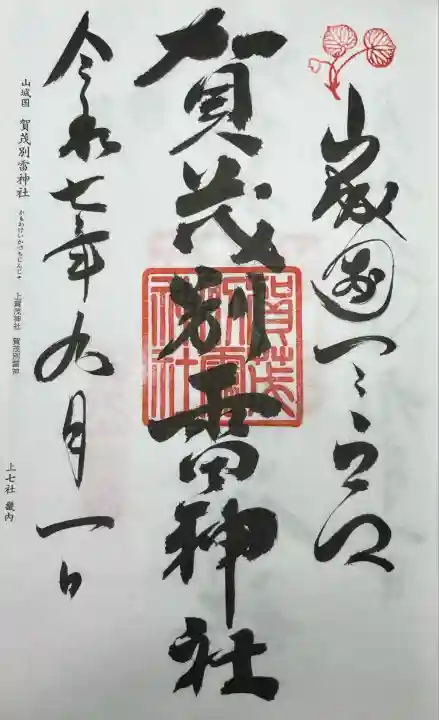 山城國一之宮
賀茂別雷神社
賀茂別雷神社
令和七年九月一日
山城国 賀茂別雷神社
かもわけいかづちじんじゃ
上賀茂神社 賀茂別雷神
上七社 畿内